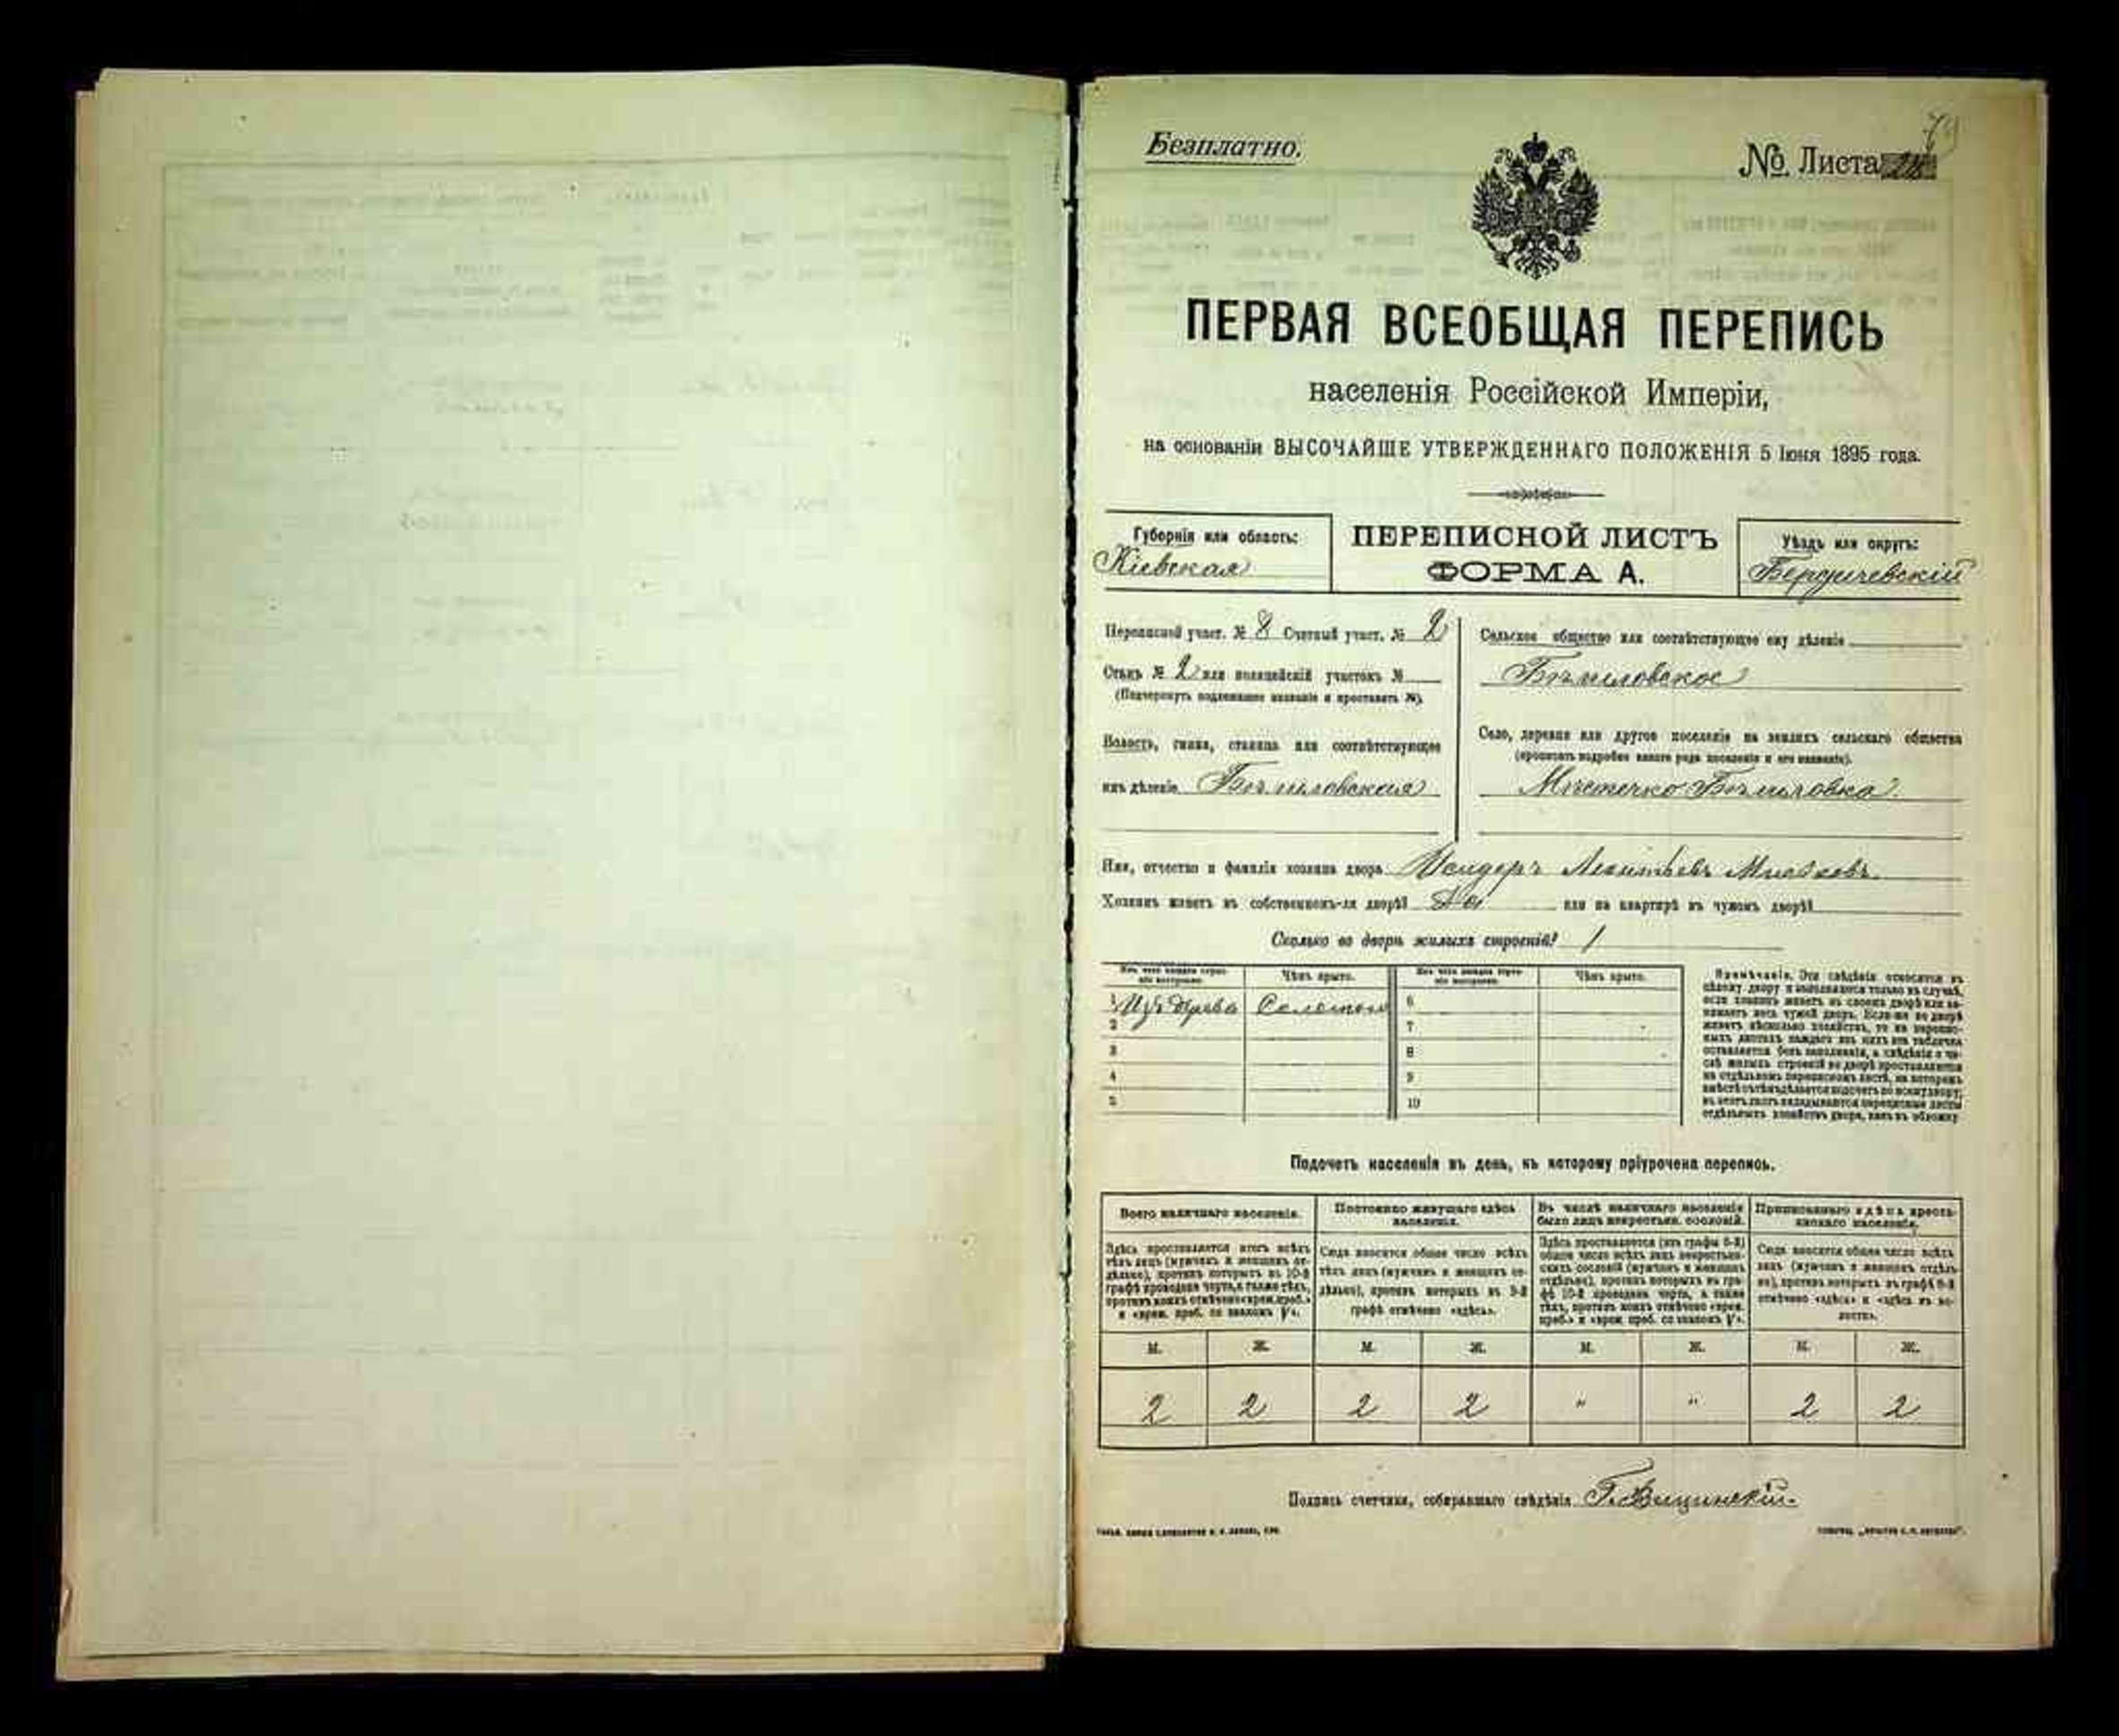 Безплатно.
№ Листа
ПЕРВАЯ ВСЕОБЩАЯ ПЕРЕПИСЬ
населенія Россійской Имперіи,
на основаніи ВЫСОЧАЙШЕ УТВЕРЖДЕННАГО ПОЛОЖЕНІЯ 5 Іюня 1895 года.
Губернія или область:
Кіевская
ПЕРЕПИСНОЙ ЛИСТЪ
ФОРМА А.
Уѣздъ или округъ:
Бердичевскій
Переписной участ. № 8 Счетный участ. № 2
Станъ № 2 или полицейскій участокъ №
(Подчеркнуть подлежащее названіе и проставить №).
Волость, гмина, станица или соотвѣтствующее
имъ дѣленіе Бѣлиловская
Сельское общество или соотвѣтствующее ему дѣленіе
Бѣлиловское
Село, деревня или другое поселеніе на земляхъ сельскаго общества
(прописать подробно какого рода поселеніе и его названіе).
Мѣстечко Бѣлиловка.
Имя, отчество и фамилія хозяина двора Исидоръ Леонтьевъ
Хозяинъ живетъ въ собственномъ-ли дворѣ? Да или на квартирѣ въ чужомъ дворѣ?
Сколько во дворѣ жилыхъ строеній? 1
Изъ чего каждое строеніе построено.
Чѣмъ крыто.
Изъ чего каждое строеніе построено.
Чѣмъ крыто.
1 Изъ дерева Соломой 6
2 7
3 8
4 9
5 10
Примѣчаніе. Эти свѣдѣнія относятся къ
цѣлому двору и заполняются только въ случаѣ,
если хозяинъ живетъ въ своемъ дворѣ или за-
нимаетъ весь чужой дворъ. Если-же во дворѣ
живетъ нѣсколько хозяйствъ, то на перепис-
ныхъ листахъ каждаго изъ нихъ эта табличка
оставляется безъ заполненія, а свѣдѣнія о чи-
слѣ жилыхъ строеній во дворѣ проставляются
на отдѣльномъ переписномъ листѣ, на которомъ
вмѣстѣ съ тѣмъ дѣлается подсчетъ по всему двору;
въ этотъ листъ вкладываются переписные листы
отдѣльныхъ хозяйствъ двора, какъ въ обложку
Подсчетъ населенія въ день, къ которому пріурочена перепись.
Всего наличнаго населенія.
Здѣсь проставляется итогъ всѣхъ
тѣхъ лицъ (мужчинъ и женщинъ от-
дѣльно), противъ которыхъ въ 10-й
графѣ проведена черта, а также тѣхъ,
противъ коихъ отмѣчено «врем. преб.»
и «врем. преб. со знакомъ V».
Постоянно живущаго здѣсь
населенія.
Сюда вносится общее число всѣхъ
тѣхъ лицъ (мужчинъ и женщинъ от-
дѣльно), противъ которыхъ въ 9-й
графѣ отмѣчено «здѣсь».
Въ числѣ наличнаго населенія
было лицъ некрестьян. сословій.
Здѣсь проставляется (изъ графы 6-й)
общее число всѣхъ лицъ некрестьян-
скихъ сословій (мужчинъ и женщинъ
отдѣльно), противъ которыхъ въ гра-
фѣ 10-й проведена черта, а также
тѣхъ, противъ коихъ отмѣчено «врем.
преб.» и «врем. преб. со знакомъ V».
Приписаннаго здѣсь кресть-
янскаго населенія.
Сюда вносится общее число всѣхъ
лицъ (мужчинъ и женщинъ отдѣль-
но), противъ которыхъ въ графѣ 8-й
отмѣчено «здѣсь» и «здѣсь въ во-
лости».
М. Ж. М. Ж. М. Ж. М. Ж.
2 2 2 2 " " 2 2
Подпись счетчика, собиравшаго свѣдѣнія Г. Вицинскій.